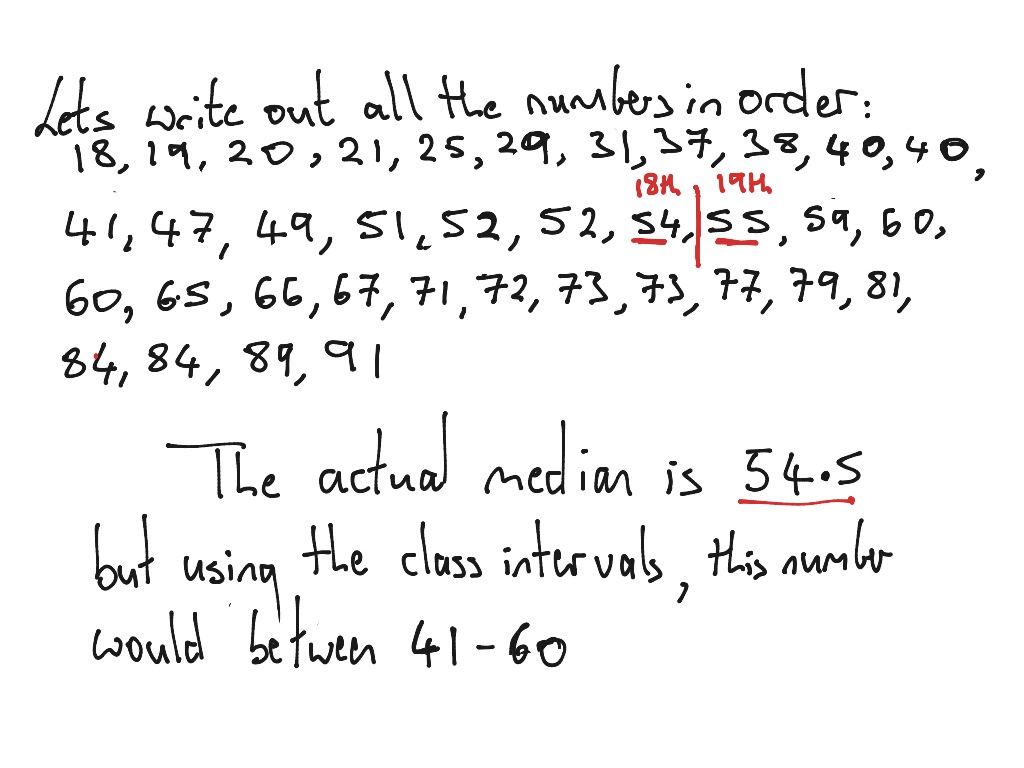 Lets write out all the numbers in order:
18, 19, 20, 21, 25, 29, 31, 37, 38, 40, 40,
18th 19th
41, 47, 49, 51, 52, 52, 54, 55, 59, 60,
60, 65, 66, 67, 71, 72, 73, 73, 77, 79, 81,
84, 84, 89, 91
The actual median is 54.5
but using the class intervals, this number
would between 41-60